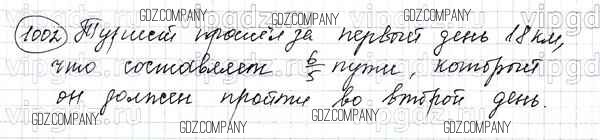 GDZ.COMPANY GDZ.COMPANY
1002 Турист прошёл за первый день 18 км,
GDZ.COMPANY GDZ.COMPANY
что составляет 6/5 пути, который
GDZ.COMPANY
он должен пройти во второй день.
GDZ.COMPANY GDZ.COMPANY